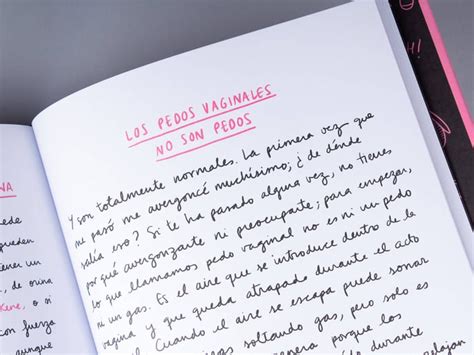 LOS PEDOS VAGINALES
NO SON PEDOS
Y son totalmente normales. La primera vez que
me pasó me avergoncé muchísimo; ¿de dónde
salía eso? Si te ha pasado alguna vez, no tienes
por qué avergonzarte ni preocuparte; para empezar,
lo que llamamos pedo vaginal no es ni un pedo
ni un gas. Es el aire que se introduce dentro de la
vagina y que queda atrapado durante el acto
Cuando el aire se escapa puede sonar
soltando gas, pero solo es
genera porque los
durante el
relajan
NA
ede
pueden
tener un
, de orina
Kene, o si
con fuerza
aunque
H!